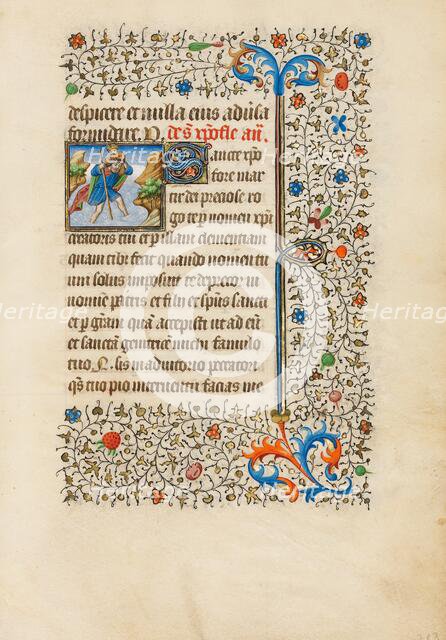 despicere et nulla eius adversa
formidare. P. De s. xpofle an.
Sancte xpo
fore mar
tir dei preciose ro
go te per nomen xpi
creatoris tui et per illam clementiam
quam tibi fecit quando nomen su
um solus imposuit te deprecor in
nomine patris et filii et spiritus sancti
et per gratiam quam accepisti ut ad eum
et sanctam genetricem michi famulo
tuo N. sis in adiutorio peccatori
qs tuo pio interventu facias me
heritage
Heritage
Heritage